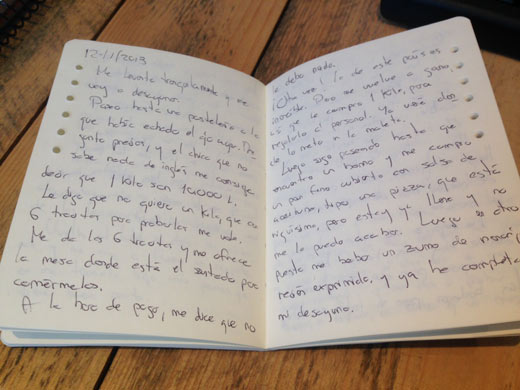 12/11/2013
Me levanto tranquilamente y me
voy a desayunar.
Paseo hasta una pastelería a la
que había echado el ojo ayer. Pre-
gunto precios, y el chico que no
sabe nada de inglés me consigue
decir que 1 kilo son 10000 L.
Le digo que no quiero un kilo, que con
6 trocitos para probarlas me vale.
Me da los 6 trocitos y me ofrece
la mesa donde está el sentado para
comérmelos.
A la hora de pagar, me dice que no
le debo nada.
¡Otra vez! Lo de este país es
increíble. Pero me vuelve a ganar,
así que le compro 1 kilo, para
regalarlo al personal. Ya veré
de lo meto a la maleta.
Luego sigo paseando hasta que
encuentro un horno y me compro
un pan fino cubierto con salsa de
aceitunas, tipo una pizza, que está
riquísimo, pero estoy ya lleno y no
me lo puedo acabar. Luego en otro
puesto me bebo un zumo de
recién exprimida, y ya he completa
mi desayuno.